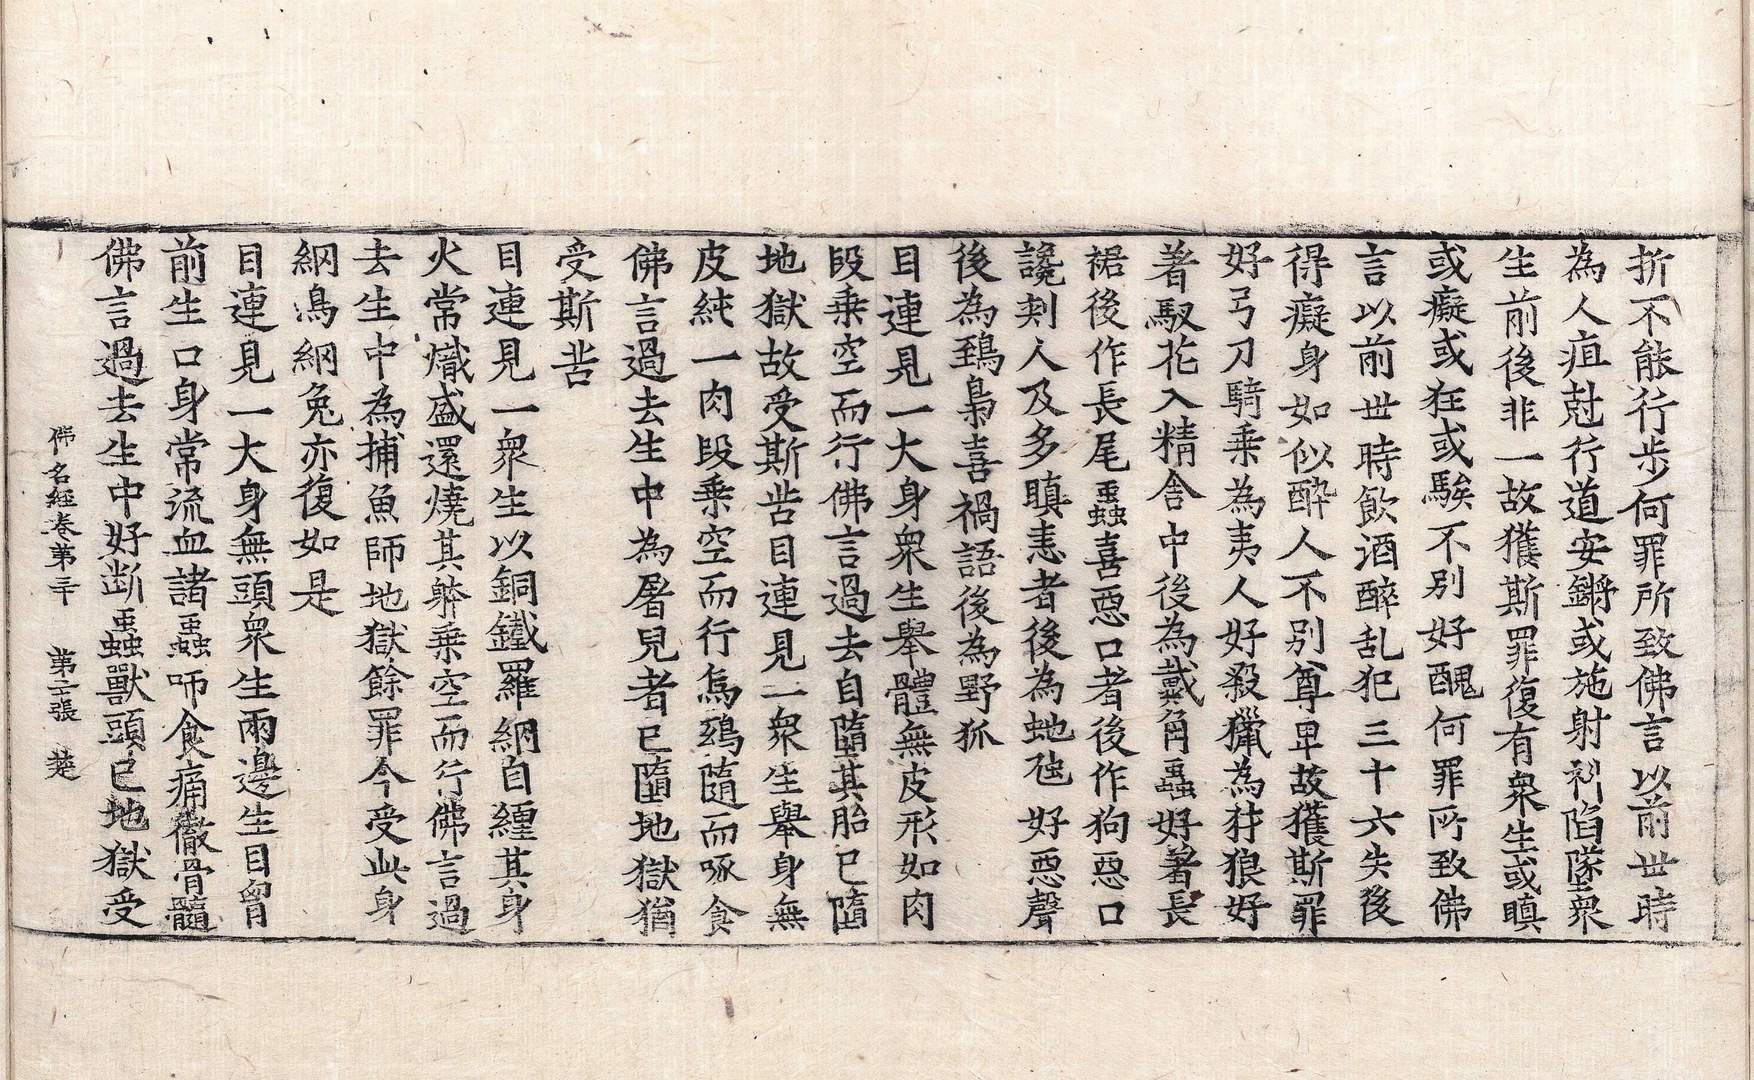 折不能行步何罪所致佛言以前世時
為人疽尅行道安鏘或施射𥝢陷墜衆
生前後非一故獲斯罪復有衆生或瞋
或癡或狂或騃不別好醜何罪所致佛
言以前世時飲酒醉乱犯三十六失後
得癡身如似醉人不別尊卑故獲斯罪
好弓刀騎乗為夷人好殺獵為犲狼好
著釵花入精舍中後為戴角蟲好著長
裾後作長尾蟲喜惡口者後作狗惡口
讒刾人及多瞋恚者後為虵虺好惡聲
後為鵄梟喜禍語後為野狐
目連見一大身衆生舉體無皮形如肉
段乗空而行佛言過去自墮其胎已墮
地獄故受斯苦目連見一衆生舉身無
皮純一肉段乗空而行烏鵄隨而啄食
佛言過去生中為屠兒者已墮地獄猶
受斯苦
目連見一衆生以銅鐵羅網自纏其身
火常熾盛還燒其躰乗空而行佛言過
去生中為捕魚師地獄餘罪今受此身
網鳥網兔亦復如是
目連見一大身無頭衆生兩邊生目胷
前生口身常流血諸蟲咂食痛徹骨髓
佛言過去生中好断蟲獸頭已地獄受
佛名經卷第三十　第二張　楚